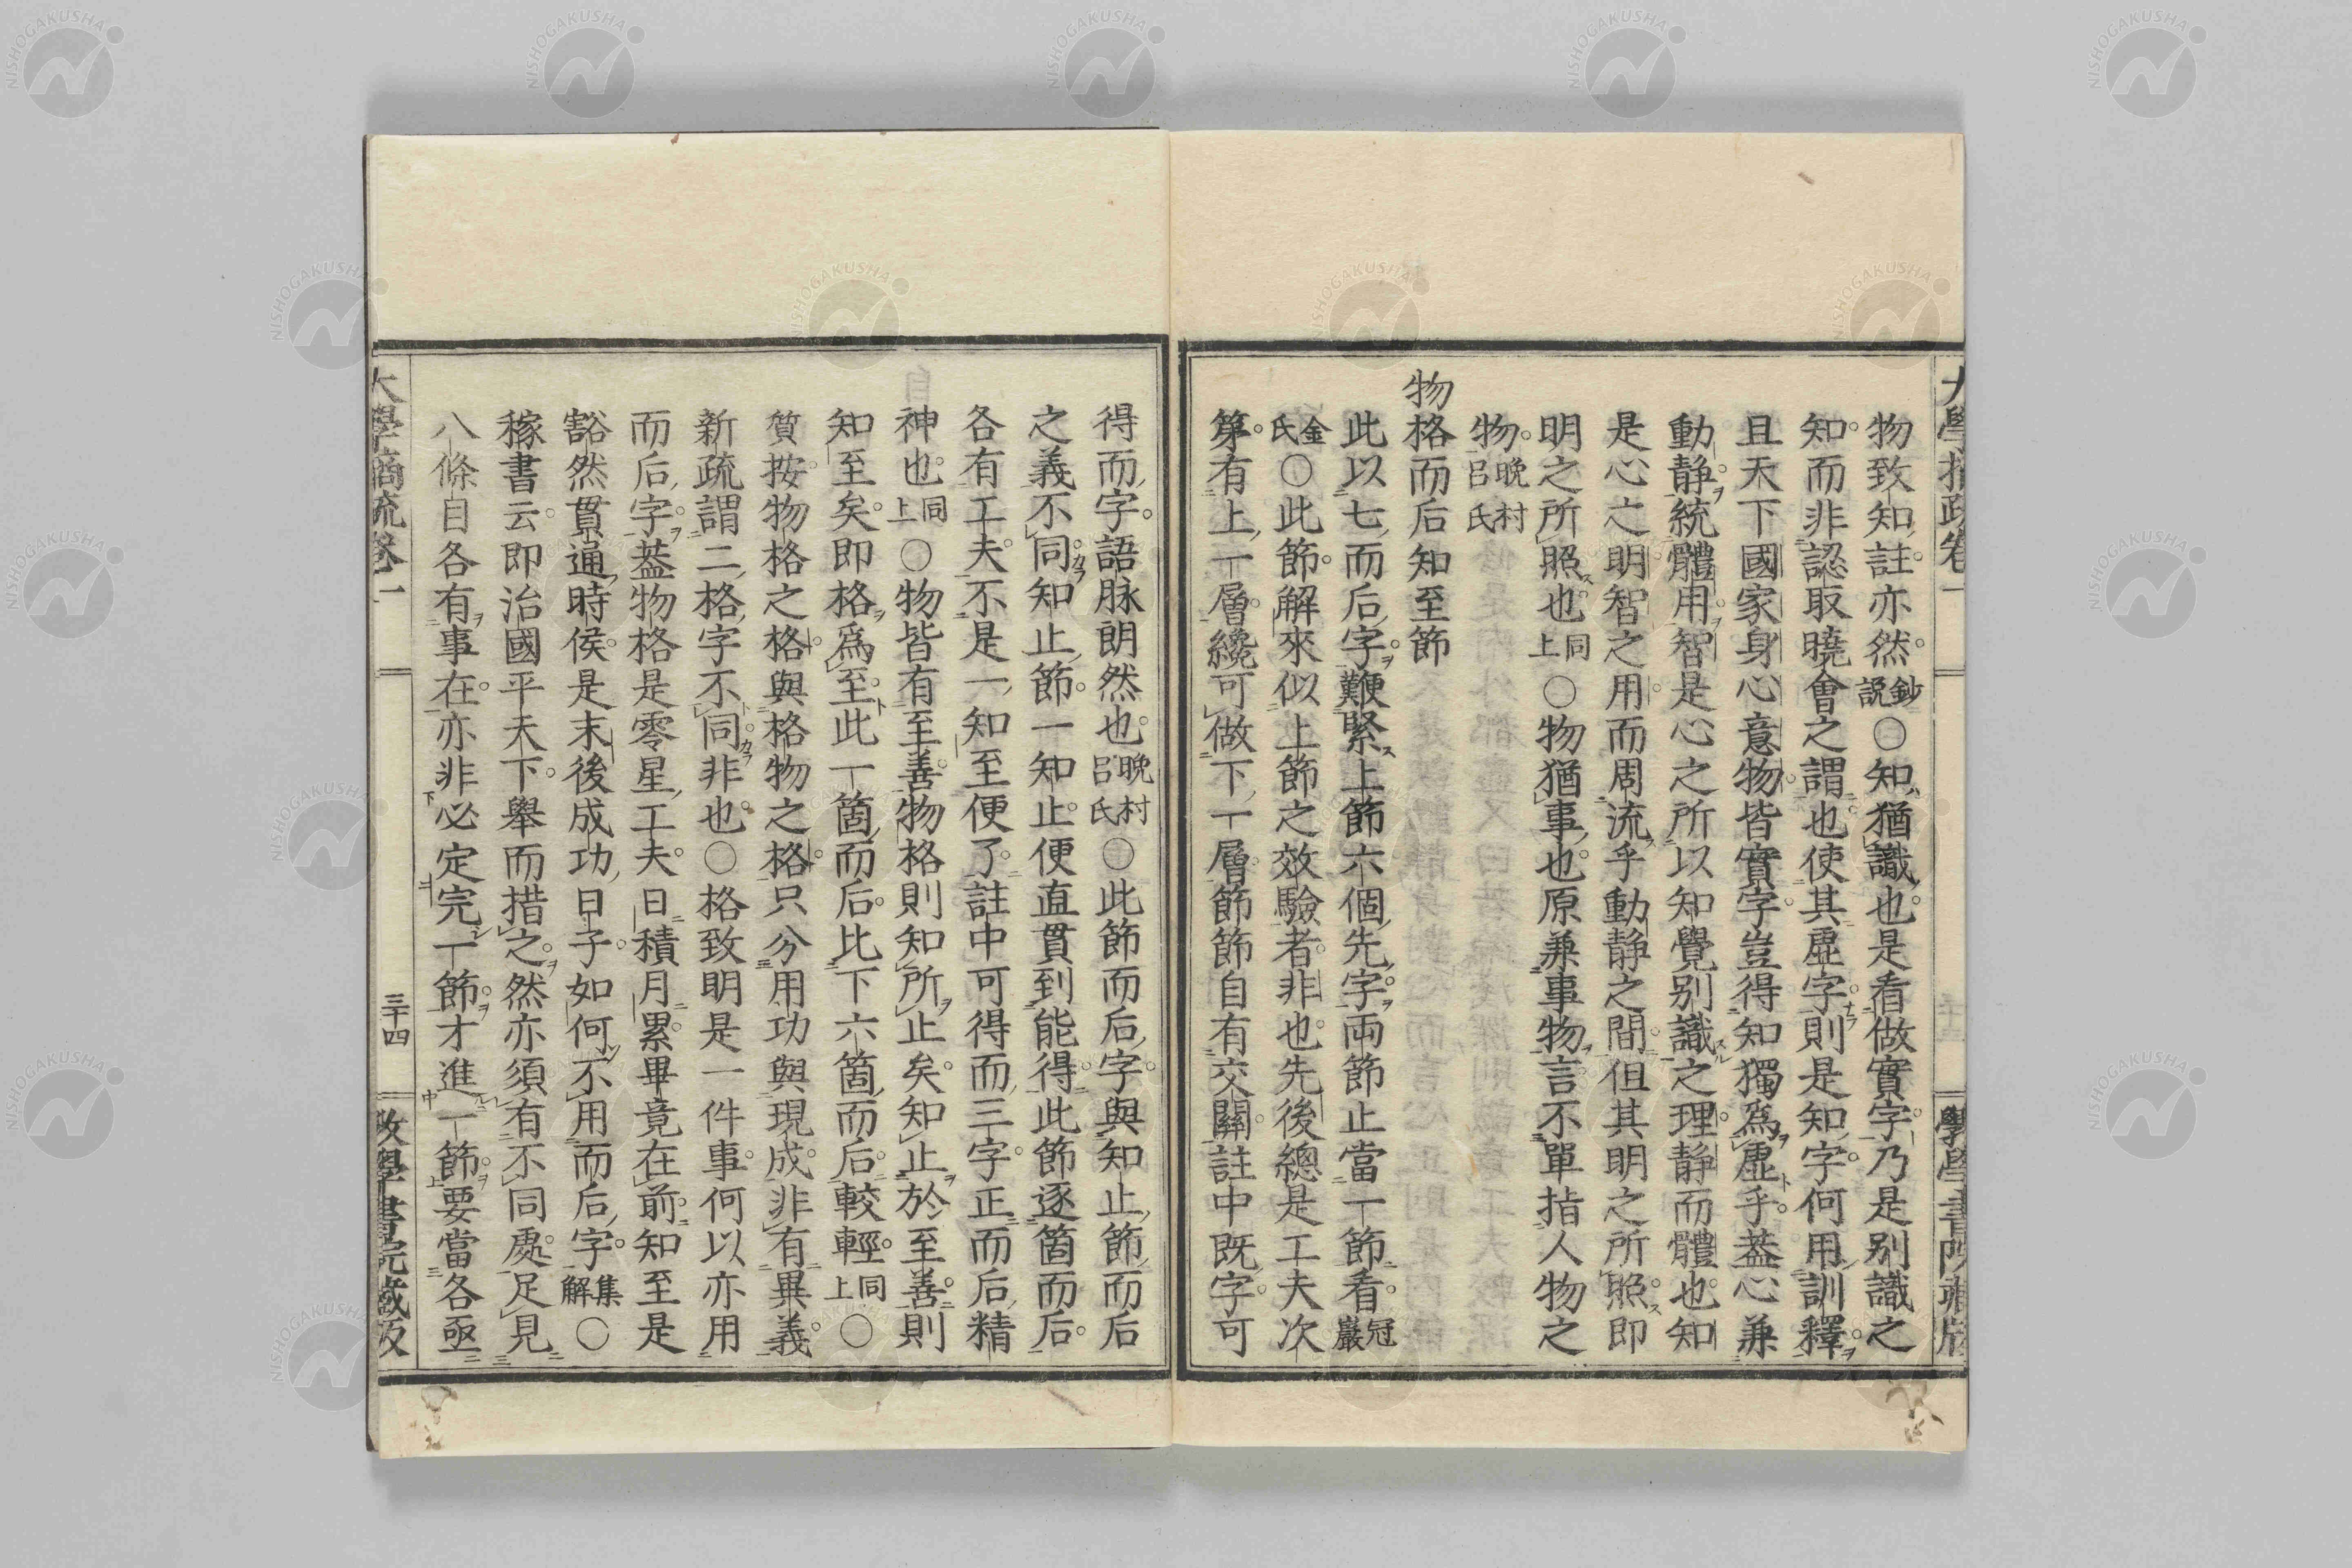 物致知註亦然鈔說○知猶識也是看做實字乃是別識之
知而非認取曉會之謂也使其虛字則是知字何用訓釋
且天下國家身心意物皆實字豈得知獨爲虛乎葢心兼
動靜統體用智是心之所以知覺別識之理靜而體也知
是心之明智之用而周流乎動靜之間但其明之所照即
明之所照也同上○物猶事也原兼事物言不單指人物之
物晚村呂氏
物格而后知至節
此以七而后字難緊上節六個先字兩節止當一節看冠巖
金氏○此節解來似上節之效驗者非也先後總是工夫次
第有上一層纔可做下一層節節自有交關註中既字可
得而字語脉朗然也晚村呂氏○此節而后字與知止節而后
之義不同知止節一知止便直貫到能得此節逐箇而后
各有工夫不是一知至便了註中可得而三字正而后精
神也同上○物皆有至善物格則知所止矣知止於至善則
知至矣即格爲至此一箇而后比下六箇而后較輕同上○
賀按物格之格與格物之格只分用功與現成非有異義
新疏謂二格字不同非也○格致明是一件事何以亦用
而后字葢物格是零星工夫日積月累畢竟在前知至是
豁然貫通時候是末後成功日子如何不用而后字集解○
稼書云即治國平天下舉而措之然亦須有不同處足見
八條目各有事在亦非必定完一節才進一節要當各亟
大學摘疏卷一
三十四
斆學書院藏版
NISHOGAKUSHA